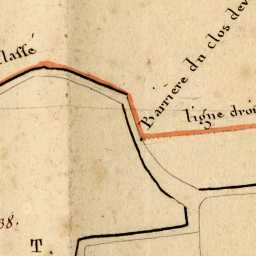 classé
Barrière du clos dev
ligne droi
38.
T.